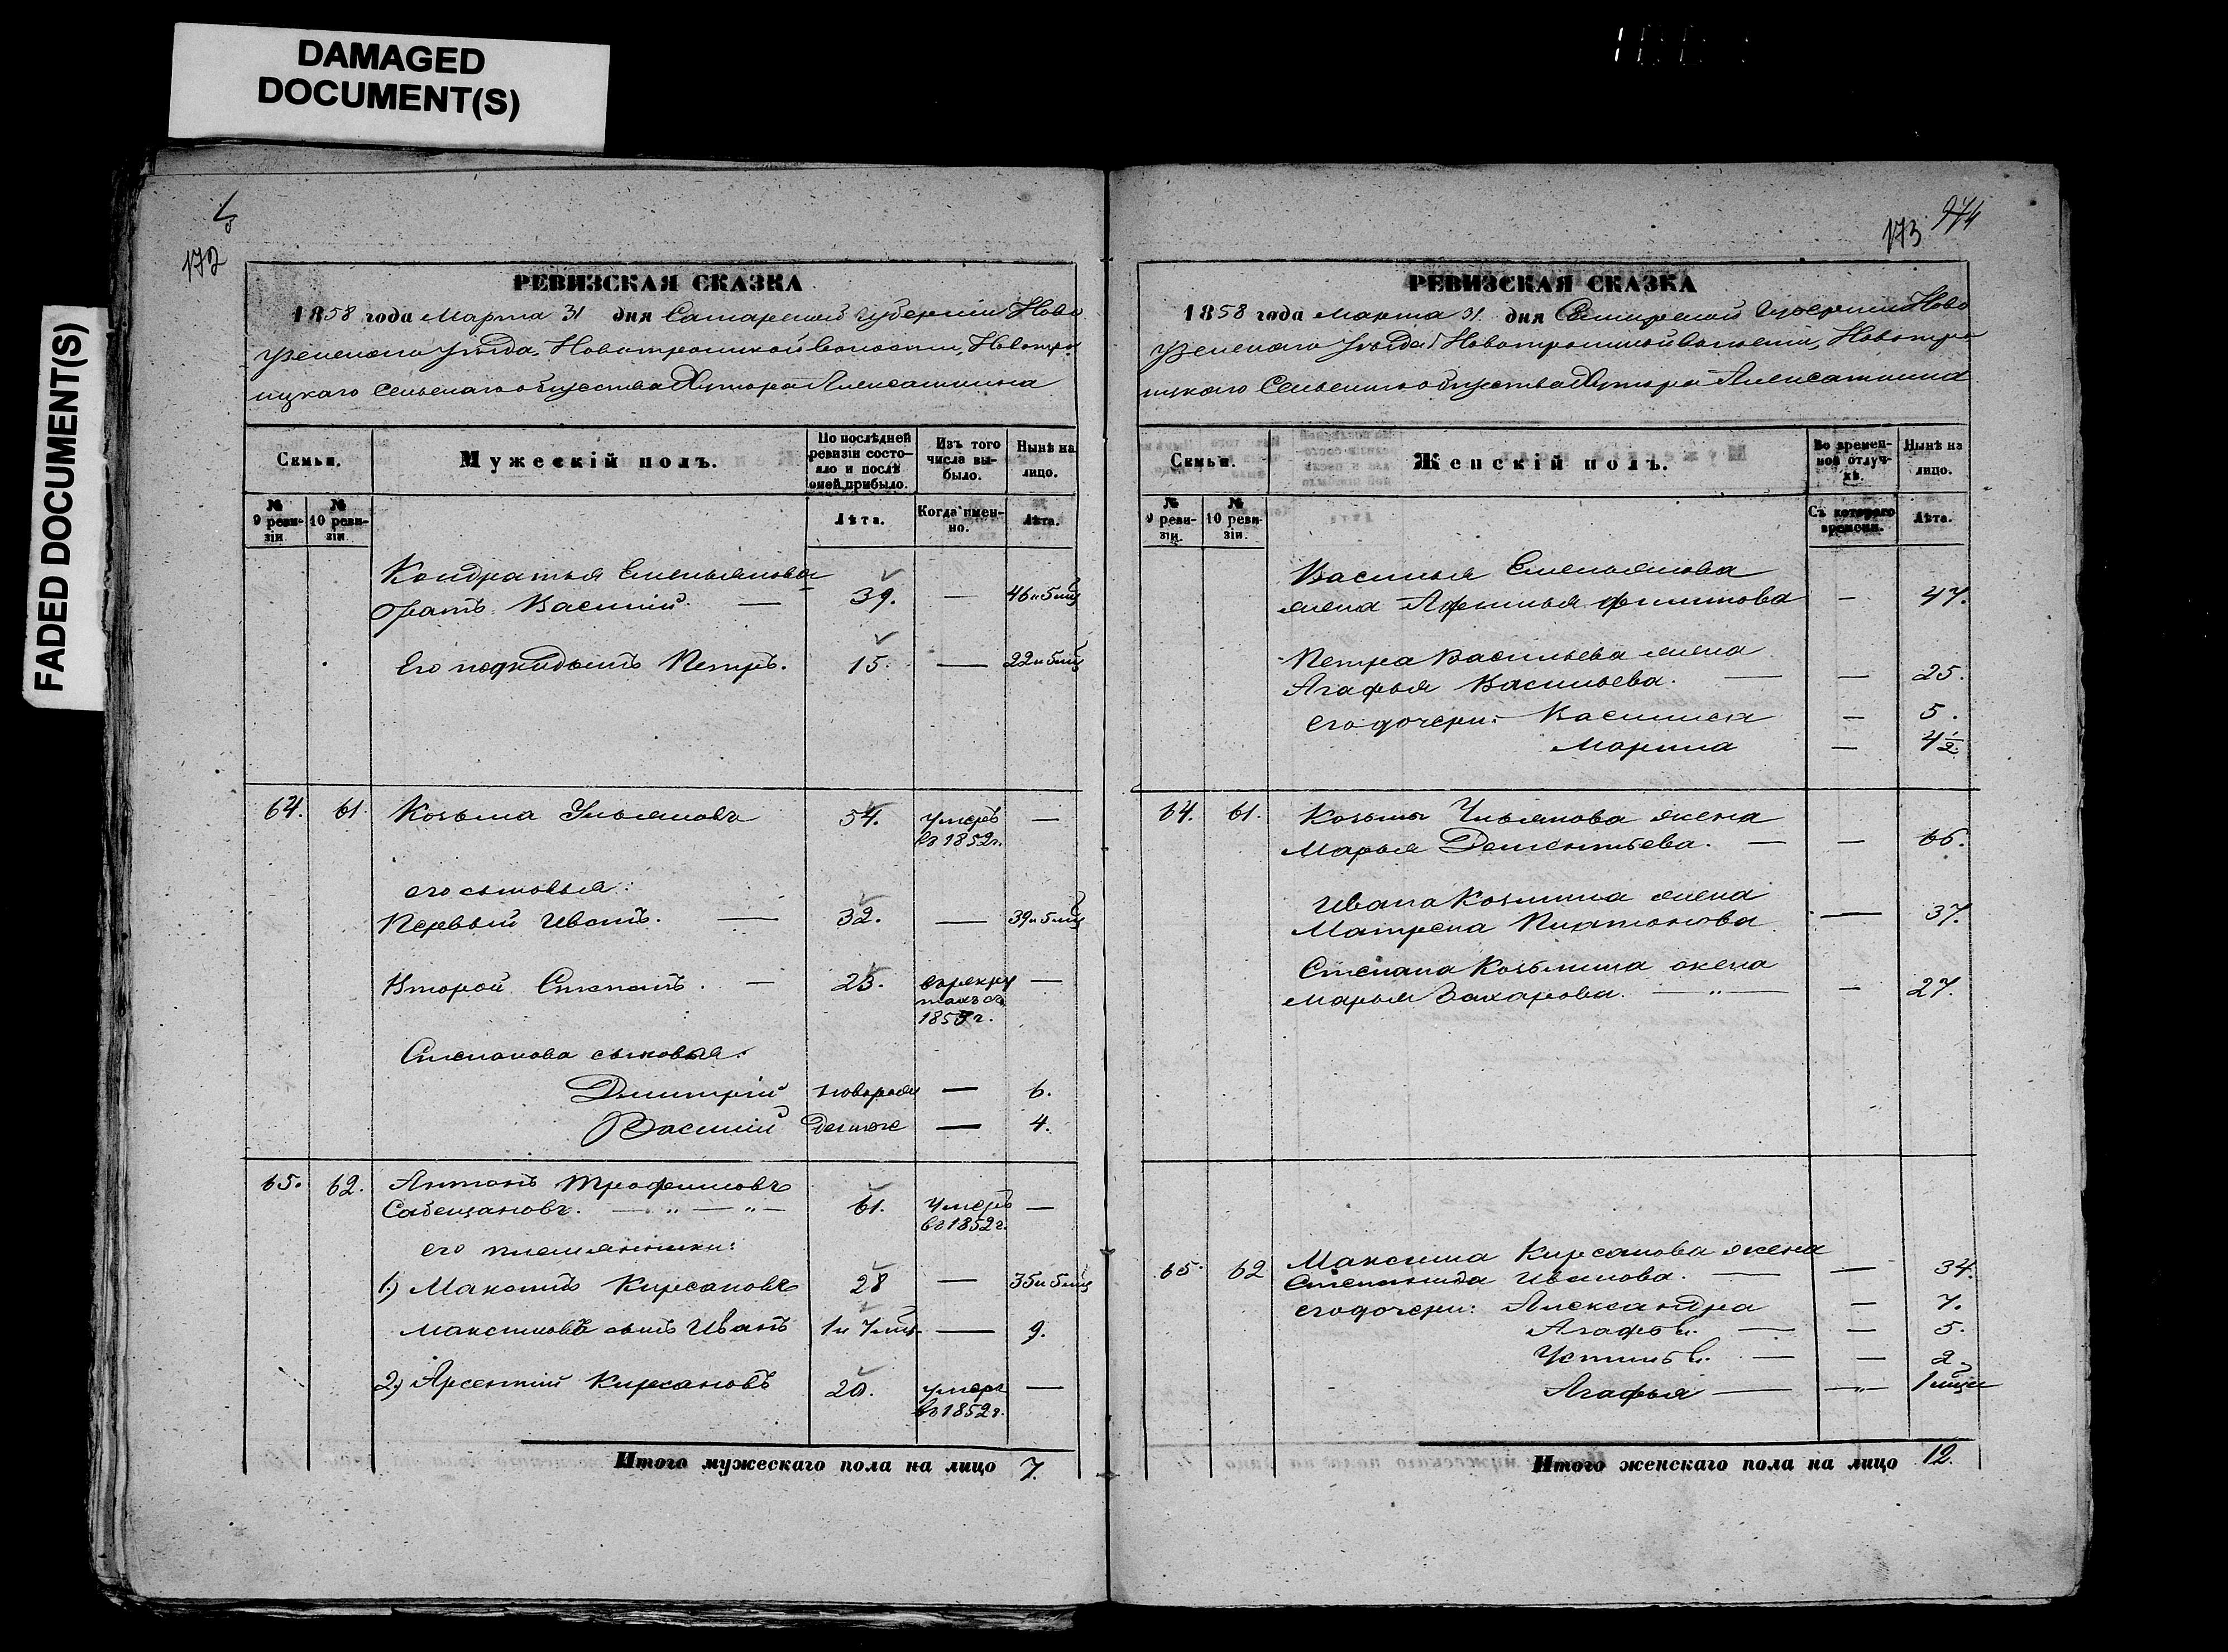 DAMAGED
DOCUMENT(S)
FADED DOCUMENT(S)
172
РЕВИЗСКАЯ СКАЗКА
1858 года Марта 31 дня Самарской Губерніи Ново
узенскаго Уѣзда, Новотроицкой волости, Новотро
ицкаго Сельскаго общества Хутора Алексашкина
Семьи.
Мужескій полъ.
По послѣдней ревизіи состояло и послѣ оней прибыло.
Изъ того числа выбыло.
Нынѣ на лицо.
№ 9 ревизіи.
№ 10 ревизіи.
Лѣта.
Когда именно.
Лѣта.
Кондратья Емельянова
братъ Василій. — 39. — 46 и 5 мц
Его подкидышъ Петръ. 15. — 22 и 5 мц
64. 61. Козьма Ульяновъ 54. умеръ —
въ 1852 г.
его сыновья:
Первый Иванъ. — 32. — 39 и 5 мц
Второй Степанъ. — 23. в рекру —
тахъ съ
185 г.
Степанова сыновья:
Дмитрій новорож — 6.
Василій — 4.
65. 62. Антонъ Трофимовъ
61. Умеръ —
въ 1852 г.
его племянники:
1.) Максимъ Кирсановъ 28 — 35 и 5 мц
Максимовъ сынъ Иванъ 1 и 7 мц. — 9.
2.) Арсентій Кирсановъ 20. умеръ —
въ 1852 г.
Итого мужескаго пола на лицо 7.
173
974
РЕВИЗСКАЯ СКАЗКА
1858 года Марта 31 дня Самарской Губерніи Ново
узенскаго Уѣзда Новотроицкой волости, Новотро
ицкаго Сельскаго общества Хутора Алексашкина
Семьи.
Женскій полъ.
Во временной отлучкѣ.
Нынѣ на лицо.
№ 9 ревизіи.
№ 10 ревизіи.
Съ котораго времени.
Лѣта.
Василья Емельянова
жена Афимья Филипова — 47.
Петра Васильева жена
Агафья Васильева. — — 25.
его дочери: Василиса — 5.
Марина — 4½
64. 61. Козьмы Ульянова жена
Марья Дементьева. — — 66.
Ивана Козьмина жена
Матрена Платонова — 37.
Степана Козьмина жена
Марья Захарова. — „ — — 27.
65. 62 Максима Кирсанова жена
Степанида Иванова. — — 34.
его дочери: Александра — 7.
Агафья. — — 5.
Устинья. — — 2
Агафья — — „ — 1 мцъ
Итого женскаго пола на лицо 12.